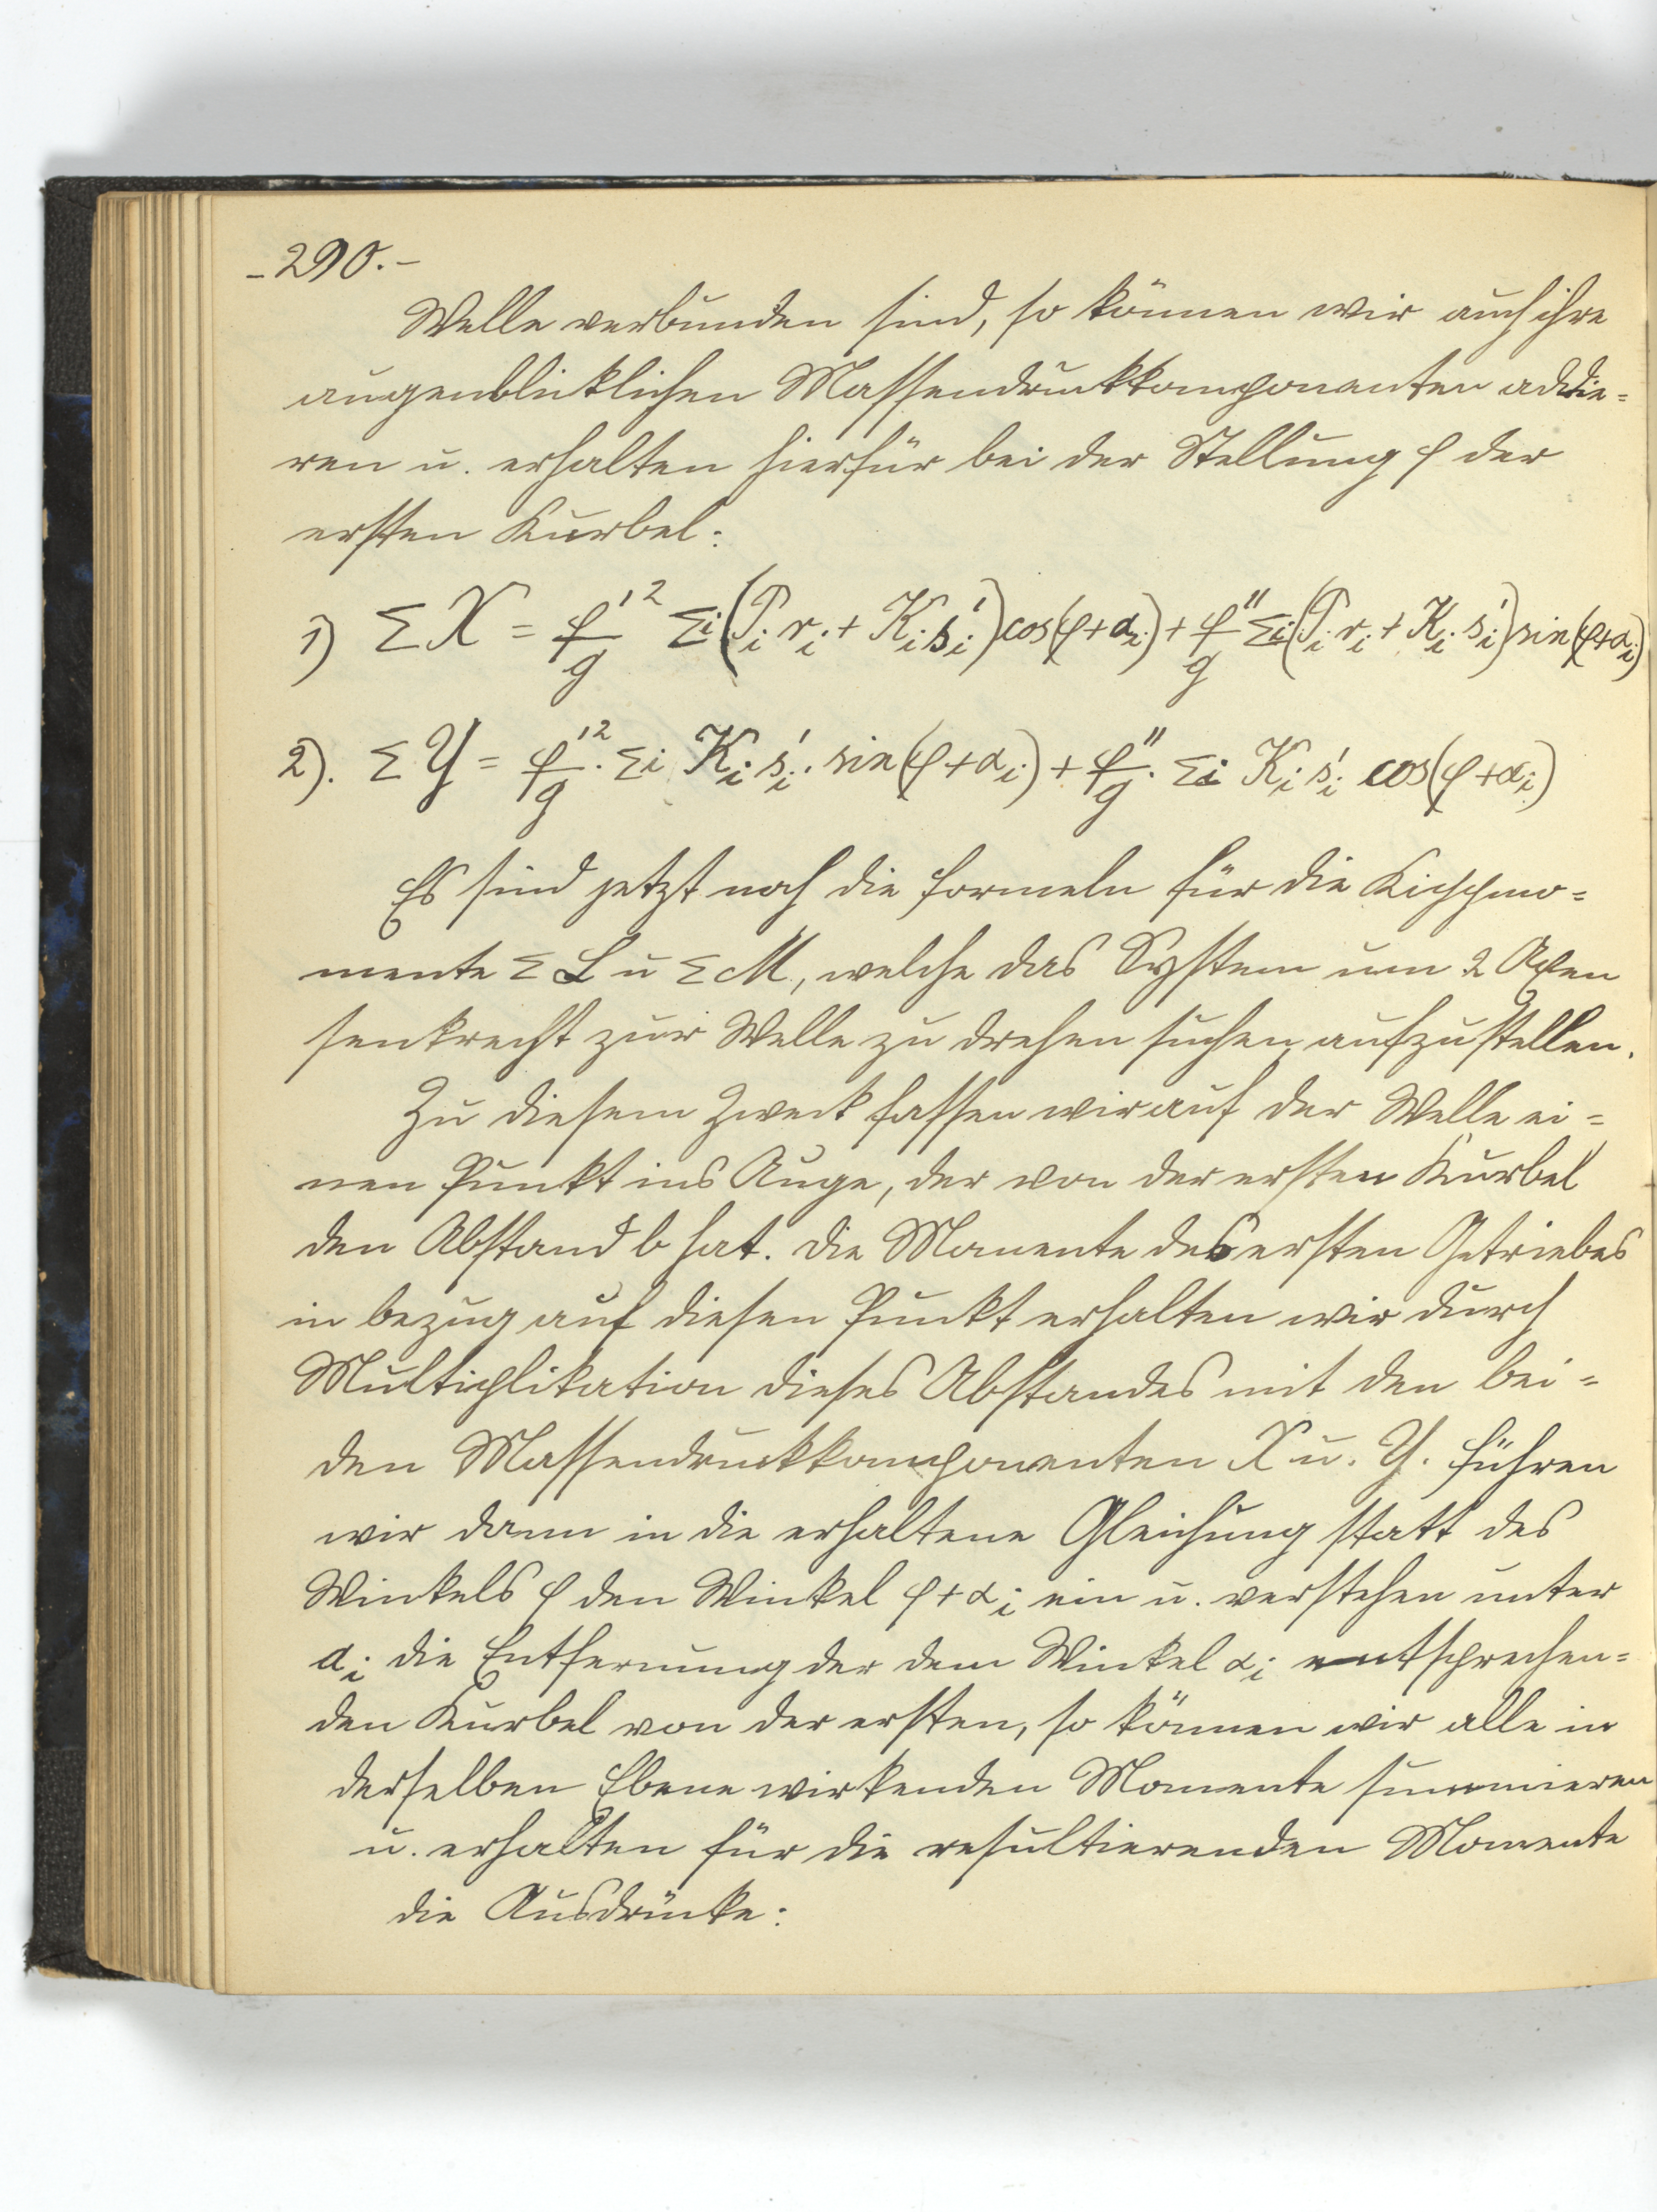 - 290. -
Welle verbunden sind, so können wir auch ihre
augenblicklichen Massendruckkomponenten addie=
ren u. erhalten hierfür bei der Stellung φ der
ersten Kurbel:
1) Σ X = φ'²/g Σi (P_i r_i + K_i s_i') cos(φ+α_i) + φ''/g Σi (P_i r_i + K_i s_i') sin(φ+α_i)
2). Σ Y = φ'²/g · Σi K_i s_i' · sin(φ+α_i) + φ''/g · Σi K_i s_i' cos(φ+α_i)
Es sind jetzt noch die Formeln für die Kippmo=
mente Σ L u Σ M, welche das System um 2 Axen
senkrecht zur Welle zu drehen suchen, aufzustellen.
Zu diesem Zweck fassen wir auf der Welle ei=
nen Punkt ins Auge, der von der ersten Kurbel
den Abstand b hat. Die Momente des ersten Getriebes
in bezug auf diesen Punkt erhalten wir durch
Multiplikation dieses Abstandes mit den bei=
den Massendruckkomponenten X u. Y. führen
wir dann in die erhaltene Gleichung statt des
Winkels φ den Winkel φ+α_i ein u. verstehen unter
a_i die Entfernung der dem Winkel α_i entsprechen=
den Kurbel von der ersten, so können wir alle in
derselben Ebene wirkenden Momente summieren
u. erhalten für die resultierenden Momente
die Ausdrücke: